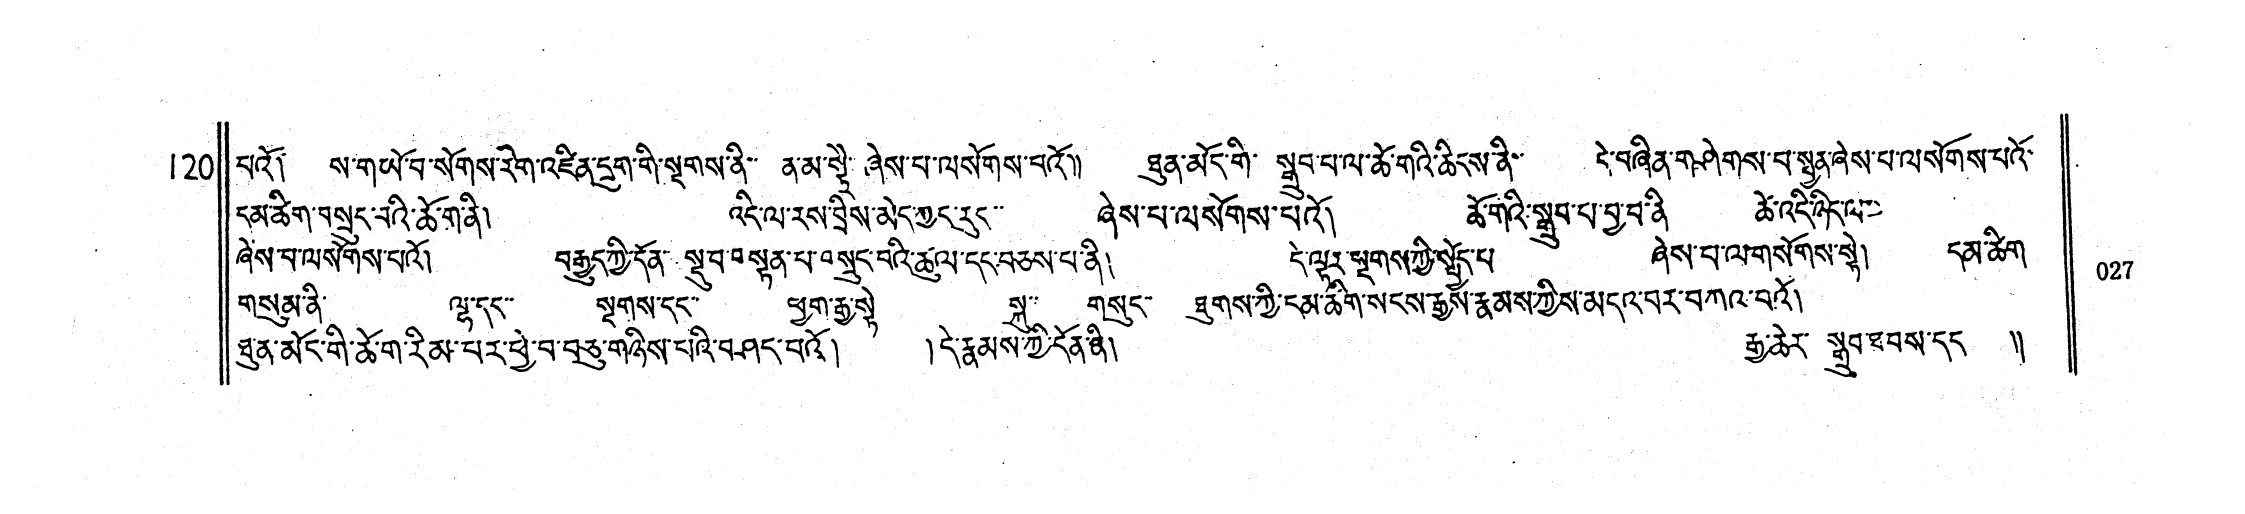 120 པའོ། ས་ག་ཡོ་བ་སོགས་རིག་འཛིན་དྲུག་གི་སྔགས་ནི་ ན་མ་སྟྲེ་ ཞེས་པ་ལ་སོགས་པའོ།། ཐུན་མོང་གི་ སྒྲུབ་པ་ལ་ཆོ་གའི་ཆིངས་ནི་ དེ་བཞིན་གཤེགས་པ་སྤྱན་ཞེས་པ་ལ་སོགས་པའོ་
དམ་ཚིག་བསྲུང་བའི་ཆོ་ག་ནི། འདི་ལ་རས་བྲིས་མེད་ཀྱང་རུང་ ཞེས་པ་ལ་སོགས་པའོ། ཆོ་གའི་སྒྲུབ་པ་བྱ་བ་ནི ཆེ་འདི་ཉིད་ལ་
ཞེས་པ་ལ་སོགས་པའོ། བརྒྱུད་ཀྱི་དོན་ སྡུབ་བསྟན་པ་བསྲུང་བའི་ཚུལ་དང་བཅས་པ་ནི། དེ་ལྟར་སྔགས་ཀྱི་སྤྱོད་པ ཞེས་པ་ལ་གསོགས་སྟེ། དམ་ཚིག 027
གསུམ་ནི་ ལྷ་དང་ སྔགས་དང་ ཕྱག་རྒྱ་སྟེ སྐུ་ གསུང་ ཐུགས་ཀྱི་དམ་ཚིག་སངས་རྒྱས་རྣམས་ཀྱིས་མདའ་བར་བཀའ་བའོ།
ཐུན་མོང་གི་ཆོ་ག་རིམ་པར་ཕྱེ་བ་བཅུ་གཉིས་པའི་བཤད་པའོ། །དེ་རྣམས་ཀྱི་དོན་ནི། རྒྱ་ཆེར་ སྒྲུབ་ཐབས་དང །།